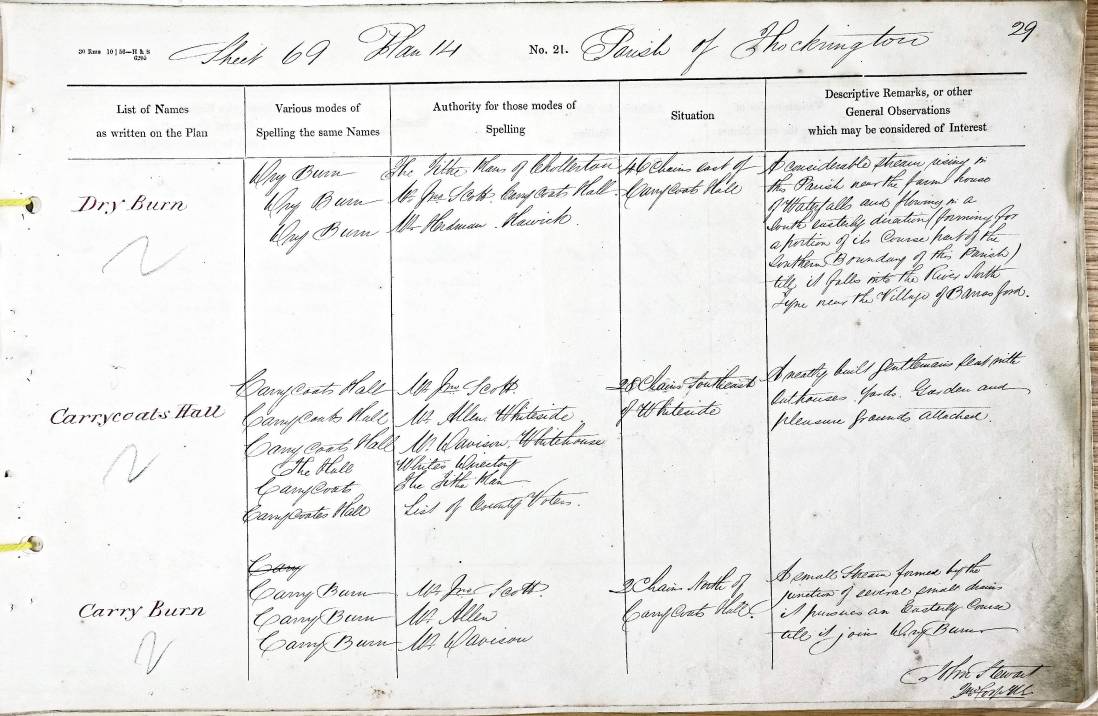 29
30 Rms 10 | 56—H & S
6205
Sheet 69 Plan 14 No. 21. Parish of Thockrington
List of Names
as written on the Plan
Various modes of
Spelling the same Names
Authority for those modes of
Spelling
Situation
Descriptive Remarks, or other
General Observations
which may be considered of Interest
Dry Burn
Dry Burn
Dry Burn
Dry Burn
The Tithe Plans of Chollerton
Mr. Jno. Scott Carrycoats Hall
Mr. Hedman. Hawick.
46 Chains east of
Carrycoats Hall
A considerable stream rising in
this Parish near the farm house
of Waterfalls and flowing in a
South easterly direction (forming for
a portion of its Course part of the
Southern Boundary of this Parish)
till it falls into the River North
Tyne near the Village of Barrasford.
Carrycoats Hall
Carrycoats Hall
Carrycoats Hall
Carrycoats Hall
The Hall
Carrycoats
Carrycoates Hall
Mr. Jno. Scott.
Mr. Allen. Whiteside
Mr. Davison. Whitehouse
Whites Directory
The Tithe Plan
List of County Voters.
28 Chains Southeast
of Whiteside
A neatly built Gentlemans Seat with
Outhouses. Yards. Garden and
pleasure grounds attached.
Carry Burn
Carry
Carry Burn
Carry Burn
Carry Burn
Mr. Jno. Scott.
Mr. Allen
Mr. Davison
2 Chains North of
Carrycoats Hall.
A small Stream formed by the
junction of several small drains
it pursues an Easterly Course
till it joins Dry Burn
John Stewart